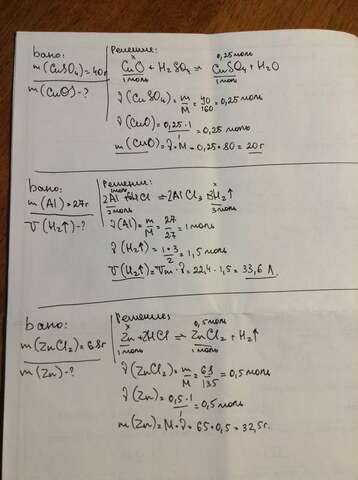 Дано:
m(CuSO₄)=40г
m(CuO)-?
Решение:
x 0,25 моль
CuO + H₂SO₄ = CuSO₄ + H₂O
1 моль 1 моль
ν(CuSO₄)=m/M=40/160=0,25 моль
ν(CuO)=0,25·1/1=0,25 моль
m(CuO)=ν·M=0,25·80=20г
Дано:
m(Al)=27г
V(H₂↑)-?
Решение:
1моль x
2Al + HCl = 2AlCl₃ + 3H₂↑
2моль 3 моль
ν(Al)=m/M=27/27=1 моль
ν(H₂↑)=1·3/2=1,5 моль
V(H₂↑)=Vm·ν=22,4·1,5=33,6 л.
Дано:
m(ZnCl₂)=68г
m(Zn)-?
Решение:
x 0,5 моль
Zn+2HCl = ZnCl₂ + H₂↑
1 моль 1 моль
ν(ZnCl₂)=m/M=68/135=0,5 моль
ν(Zn)=0,5·1/1=0,5 моль
m(Zn)=M·ν=65·0,5=32,5г.